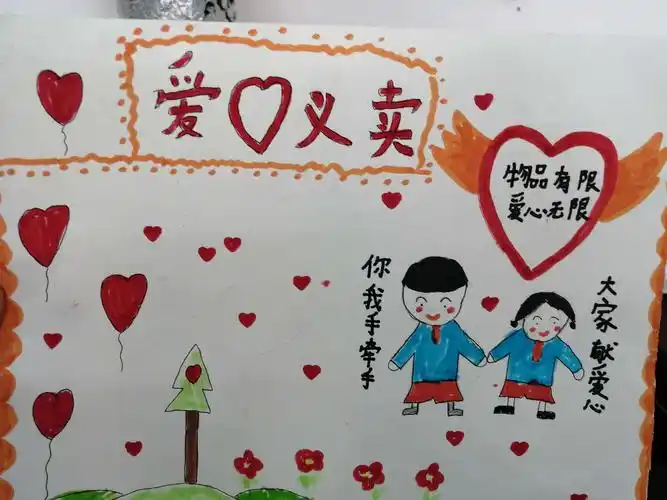 爱义卖
物品有限
爱心无限
你我手牵手
大家献爱心